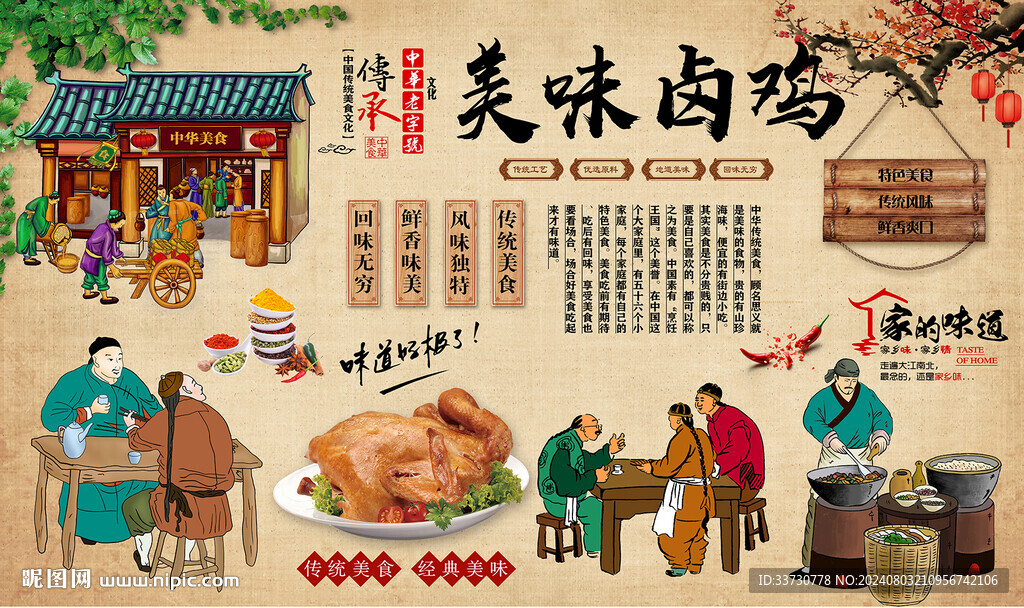 美味卤鸡
传统工艺
优选原料
地道美味
回味无穷
中華老字號
文化
傳承
【中国传统美食文化】
中华美食
中华美食
特色美食
传统风味
鲜香爽口
传统美食
风味独特
鲜香味美
回味无穷
中华传统美食，顾名思义就
是美味的食物，贵的有山珍
海味，便宜的有街边小吃。
其实美食是不分贵贱的，只
要是自己喜欢的，都可以称
之为美食。中国素有“烹饪
王国。这个美誉。在中国这
个大家庭里，有五十六个小
家庭，每个家庭都有自己的
特色美食。美食吃前有期待
、吃后有回味，享受美食也
要看场合，场合好美食吃起
来才有味道。
味道好极了！
家的味道
家乡味·家乡情
TASTE
OF HOME
走遍大江南北，
最念的，还是家乡味...
传统美食
经典美味
昵图网 www.nipic.com
ID:33730778 NO:20240803210956742106